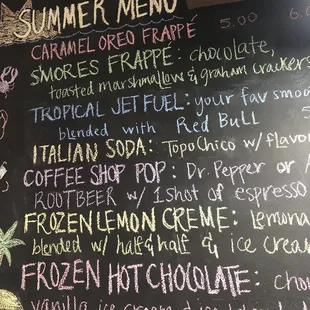 SUMMER MENU
CARAMEL OREO FRAPPÉ 5.00 6.
S'MORES FRAPPÉ: chocolate,
toasted marshmallow & graham crackers
TROPICAL JET FUEL: your fav
blended with Red Bull
ITALIAN SODA: TopoChico w/
COFFEE SHOP POP: Dr. Pepper or
ROOTBEER w/ 1 shot of espresso
FROZEN LEMON CREME:
blended w/ half & half & ice
FROZEN HOT CHOCOLATE:
vanilla ice cream